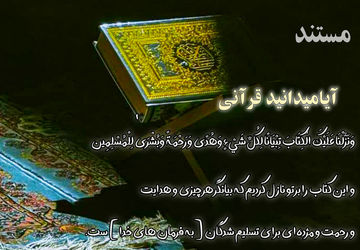 مستند
آیا میدانید قرآنی
وَنَزَّلْنَا عَلَيْكَ الْكِتَابَ تِبْيَانًا لِكُلِّ شَيْءٍ وَهُدًى وَرَحْمَةً وَبُشْرَى لِلْمُسْلِمِينَ
و این کتاب را بر تو نازل کردیم که بیانگر هر چیزی و هدایت
و رحمت و مژده ای برای تسلیم شدگان [ به فرمان های خدا ] است.